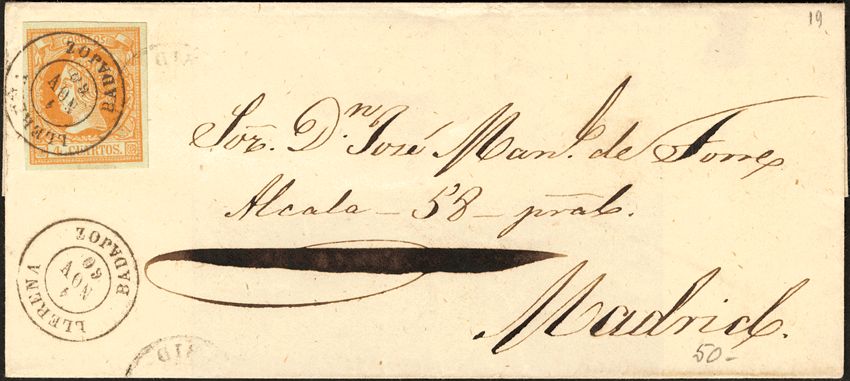 19
CORREOS
4 CUARTOS.
LLERENA
BADAJOZ
NOV
60
Sor. Dn. José Manl. de Torre
Alcala - 58 - pral.
Madrid.
LLERENA
BADAJOZ
4
NOV
60
RID
50-